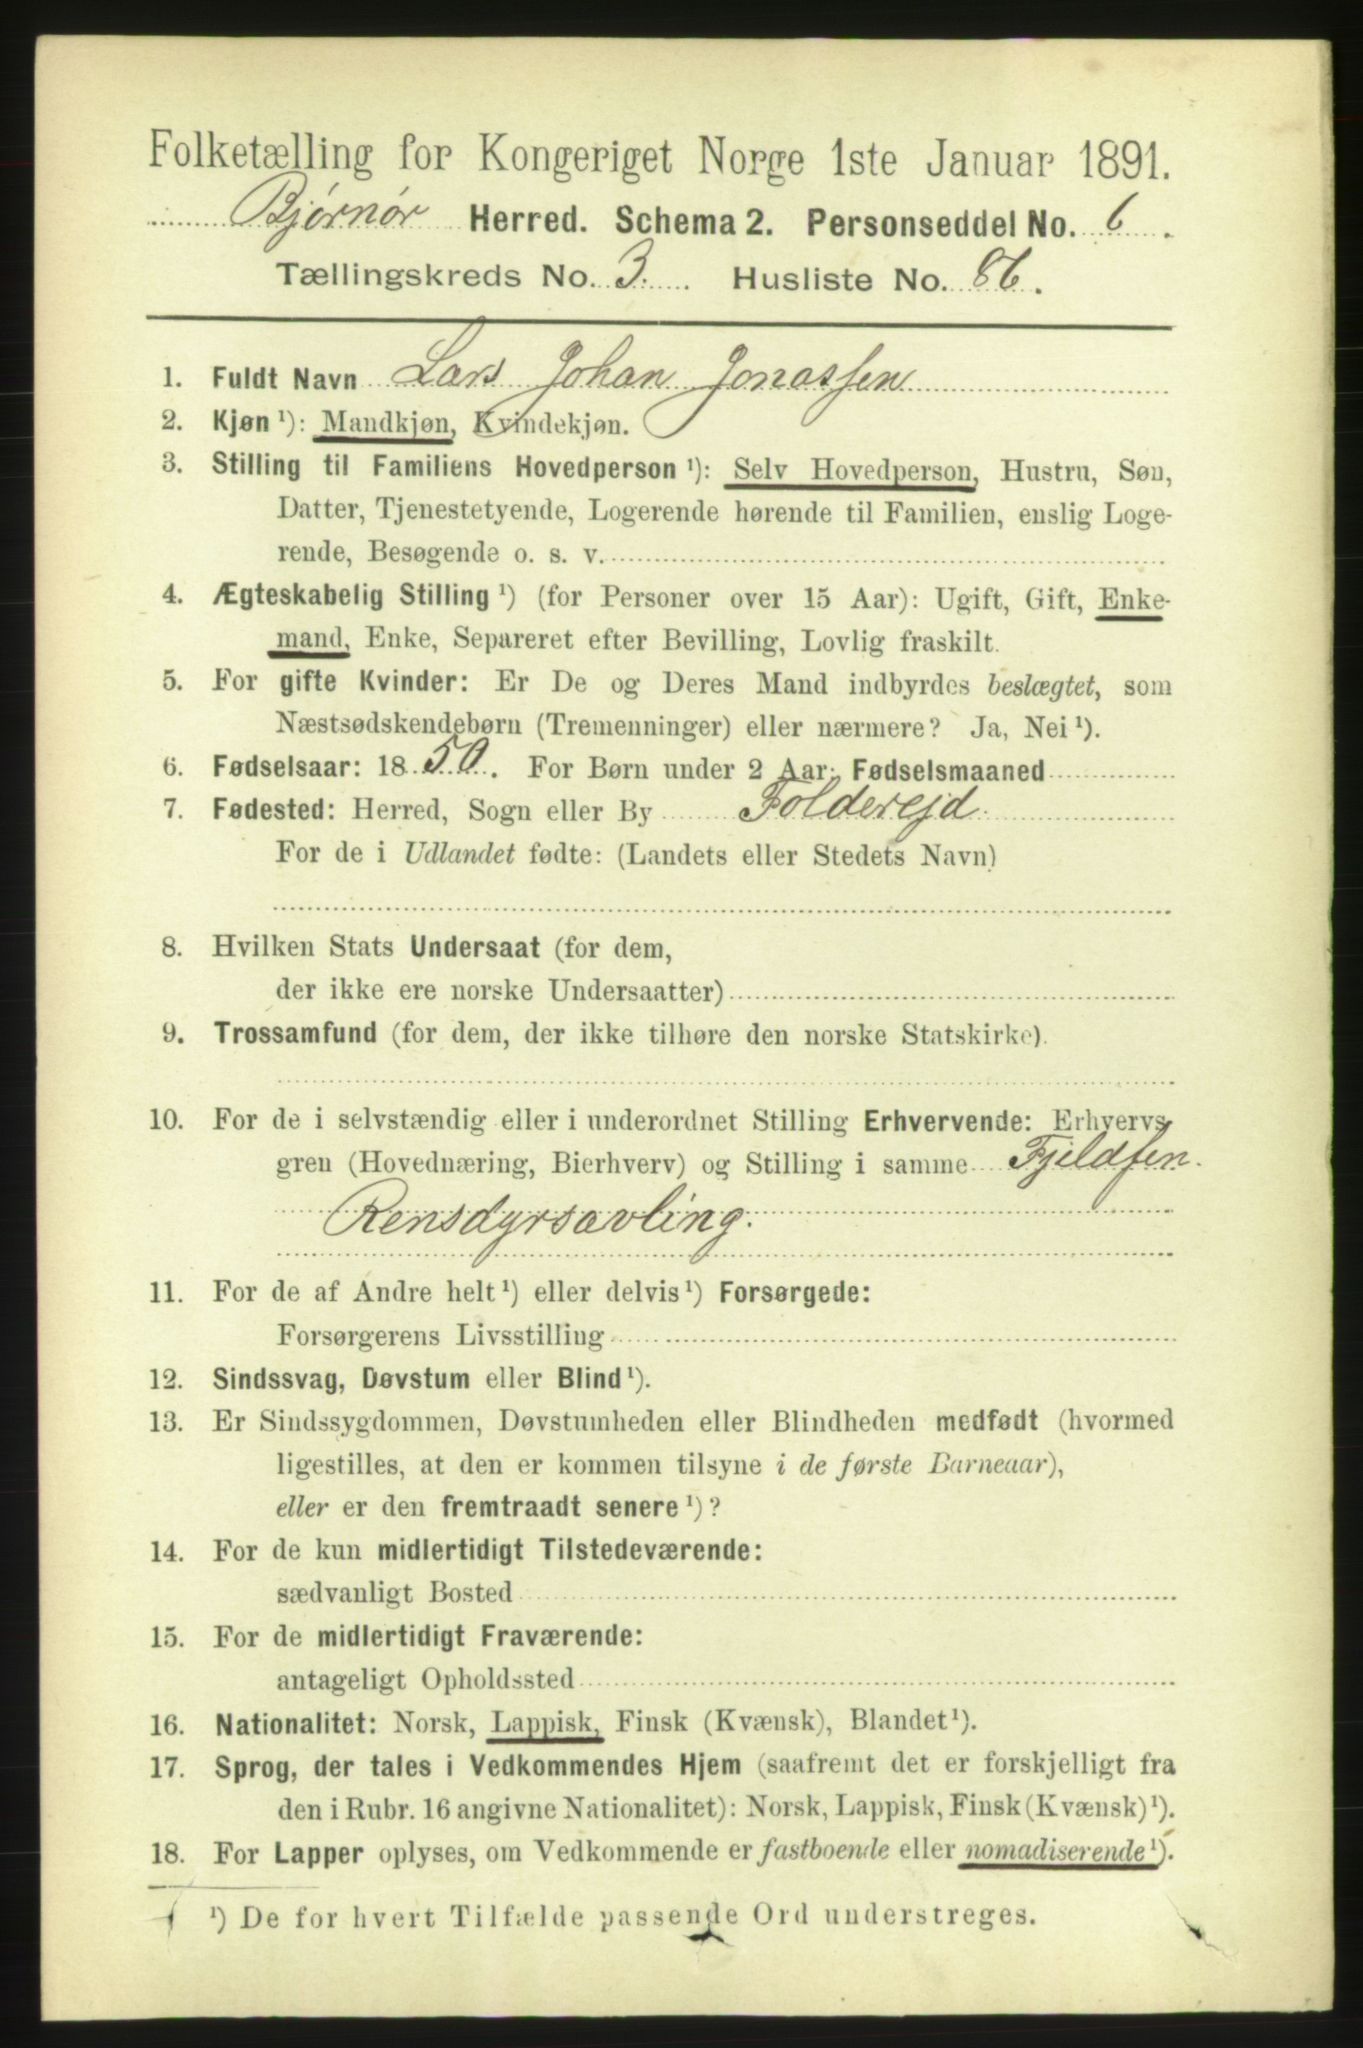 Folketælling for Kongeriget Norge 1ste Januar 1891.
Bjørnør Herred. Schema 2. Personseddel No. 6.
Tællingskreds No. 3. Husliste No. 86.
1. Fuldt Navn Lars Johan Jonassen
2. Kjøn ¹): Mandkjøn, Kvindekjøn.
3. Stilling til Familiens Hovedperson ¹): Selv Hovedperson, Hustru, Søn,
Datter, Tjenestetyende, Logerende hørende til Familien, enslig Loge-
rende, Besøgende o. s. v.
4. Ægteskabelig Stilling ¹) (for Personer over 15 Aar): Ugift, Gift, Enke-
mand, Enke, Separeret efter Bevilling, Lovlig fraskilt.
5. For gifte Kvinder: Er De og Deres Mand indbyrdes beslægtet, som
Næstsødskendebørn (Tremenninger) eller nærmere? Ja, Nei ¹).
6. Fødselsaar: 1850. For Børn under 2 Aar: Fødselsmaaned
7. Fødested: Herred, Sogn eller By Folderejd
For de i Udlandet fødte: (Landets eller Stedets Navn)
8. Hvilken Stats Undersaat (for dem,
der ikke ere norske Undersaatter)
9. Trossamfund (for dem, der ikke tilhøre den norske Statskirke).
10. For de i selvstændig eller i underordnet Stilling Erhvervende: Erhvervs-
gren (Hovednæring, Bierhverv) og Stilling i samme Fjeldfin.
Rensdyrsavling.
11. For de af Andre helt ¹) eller delvis ¹) Forsørgede:
Forsørgerens Livsstilling
12. Sindssvag, Døvstum eller Blind ¹).
13. Er Sindssygdommen, Døvstumheden eller Blindheden medfødt (hvormed
ligestilles, at den er kommen tilsyne i de første Barneaar),
eller er den fremtraadt senere ¹)?
14. For de kun midlertidigt Tilstedeværende:
sædvanligt Bosted
15. For de midlertidigt Fraværende:
antageligt Opholdssted
16. Nationalitet: Norsk, Lappisk, Finsk (Kvænsk), Blandet ¹).
17. Sprog, der tales i Vedkommendes Hjem (saafremt det er forskjelligt fra
den i Rubr. 16 angivne Nationalitet): Norsk, Lappisk, Finsk (Kvænsk) ¹).
18. For Lapper oplyses, om Vedkommende er fastboende eller nomadiserende ¹).
¹) De for hvert Tilfælde passende Ord understreges.